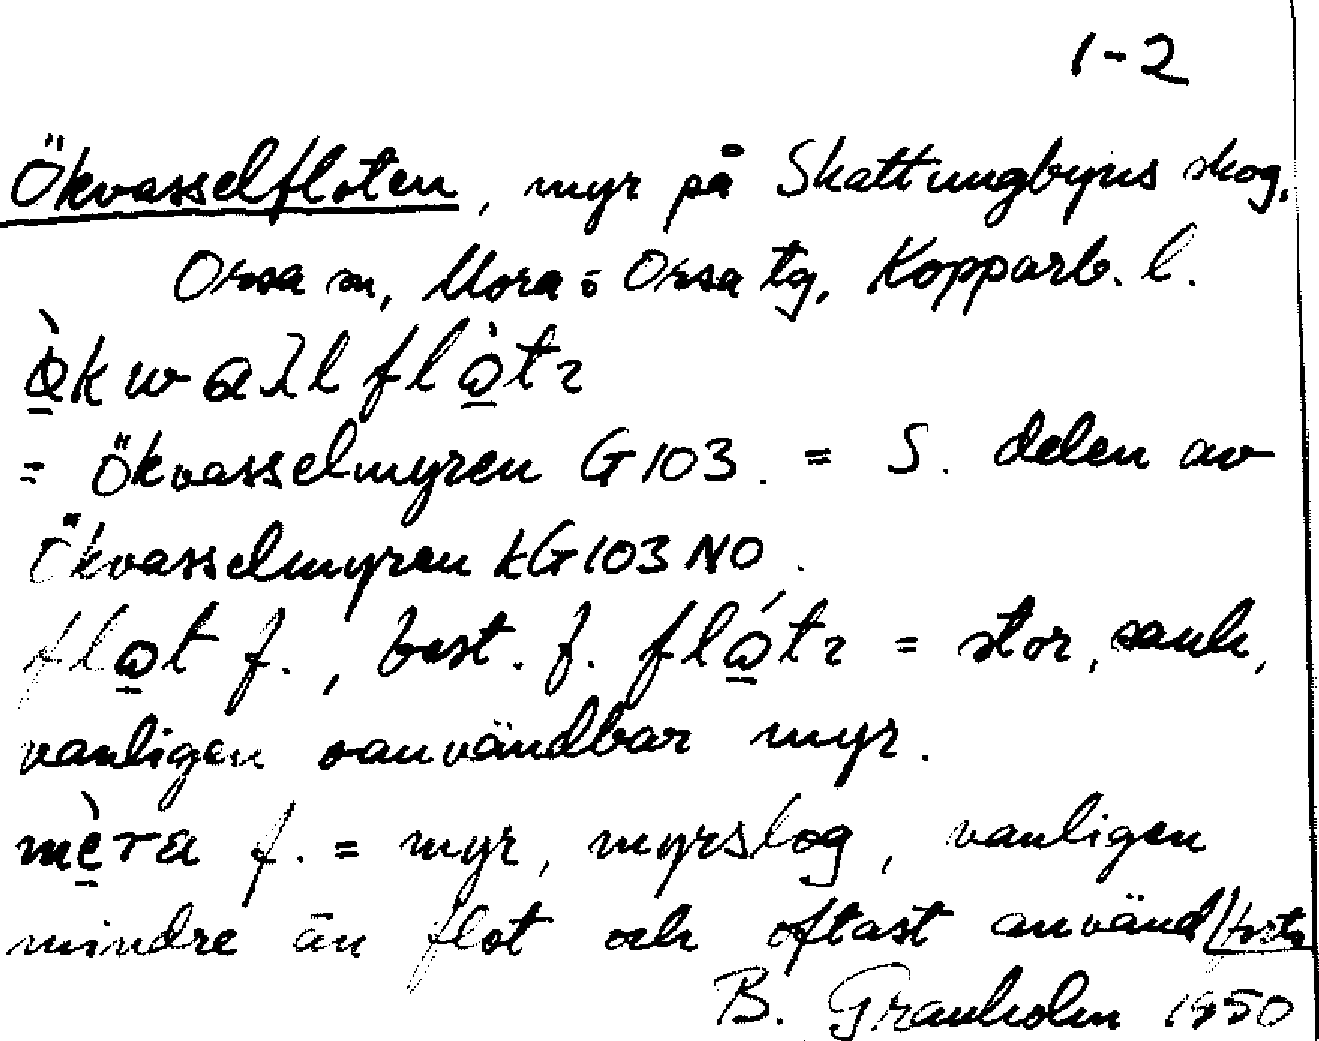 1-2
Ökvasselfloten, myr på Skattungbyns skog,
Orsa sn, Mora o Orsa tg, Kopparb. l.
= Ökvasselmyren G103. = S. delen av
Ökvasselmyren kG103 NO.
flo̠t f., best. f. = stor, sank,
vanligen oanvändbar myr.
mè̠ra f. = myr, myrslog, vanligen
mindre än flot och oftast använd/forts
B. Granholm 1950